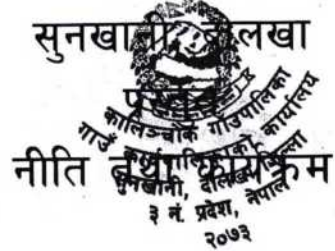 सुनखानी, दोलखा
प्रस्तुत
नीति तथा कार्यक्रम
कालिञ्चोक गाउँपालिका
गाउँ कार्यपालिकाको कार्यालय
सुनखानी, दोलखा जिल्ला
३ नं. प्रदेश, नेपाल
२०७३